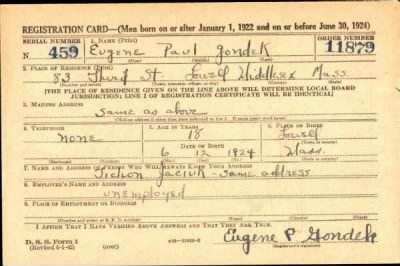 REGISTRATION CARD—(Men born on or after January 1, 1922 and on or before June 30, 1924)
SERIAL NUMBER 1. NAME (Print) ORDER NUMBER
N 459 Eugene Paul Gondek 11879
(First) (Middle) (Last)
2. PLACE OF RESIDENCE (Print)
83 Third St. Lowell Middlesex Mass.
[THE PLACE OF RESIDENCE GIVEN ON THE LINE ABOVE WILL DETERMINE LOCAL BOARD
JURISDICTION; LINE 2 OF REGISTRATION CERTIFICATE WILL BE IDENTICAL]
3. MAILING ADDRESS
Same as above
4. TELEPHONE 5. AGE IN YEARS 6. PLACE OF BIRTH
None 18 Lowell
DATE OF BIRTH
6 12 1924 Mass.
7. NAME AND ADDRESS OF PERSON WHO WILL ALWAYS KNOW YOUR ADDRESS
Jaciuk - Same address
8. EMPLOYER'S NAME AND ADDRESS
unemployed
9. PLACE OF EMPLOYMENT OR BUSINESS
I AFFIRM THAT I HAVE VERIFIED ABOVE ANSWERS AND THAT THEY ARE TRUE.
D. S. S. FORM 1 (over) Eugene P Gondek
(Revised 6-1-42) (Registrant's signature)